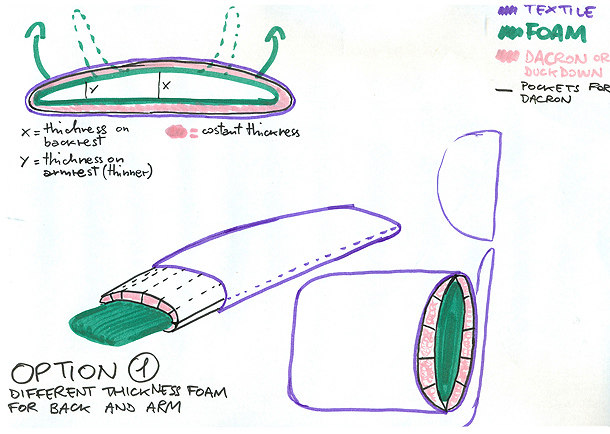 TEXTILE
FOAM
DACRON OR
DUCKDOWN
POCKETS FOR
DACRON
Y
X
X = thichness on
backrest
= costant thickness
Y = thichness on
armrest (thinner)
OPTION 1
DIFFERENT THICKNESS FOAM
FOR BACK AND ARM